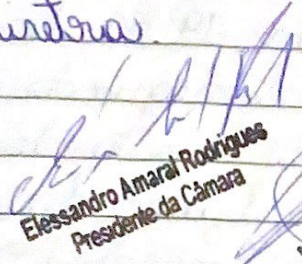 Elessandro Amaral Rodrigues
Presidente da Câmara